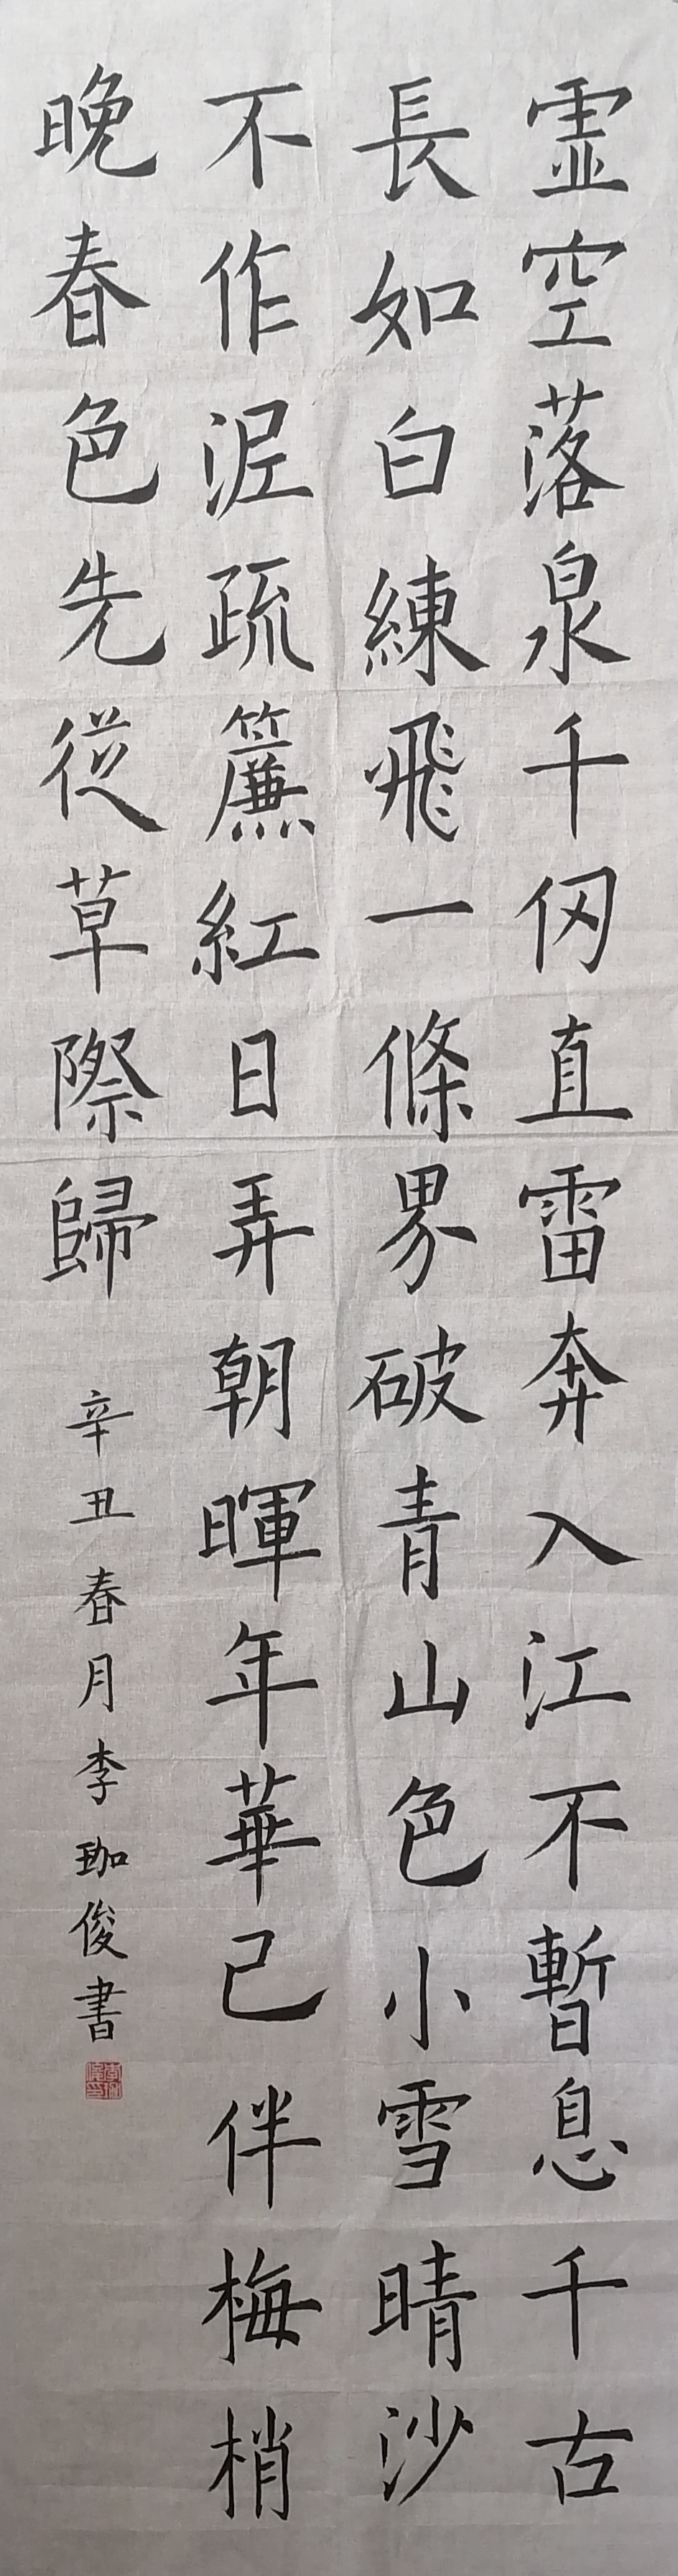 霊空落泉千仞直雷奔入江不暫息千古
長如白練飛一條界破青山色小雪晴沙
不作泥疏簾紅日弄朝暉年華已伴梅梢
晚春色先従草際歸
辛丑春月李珈俊書